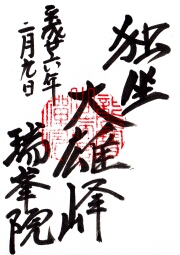 独坐
大雄峰
瑞峯院
平成廿六年
二月九日